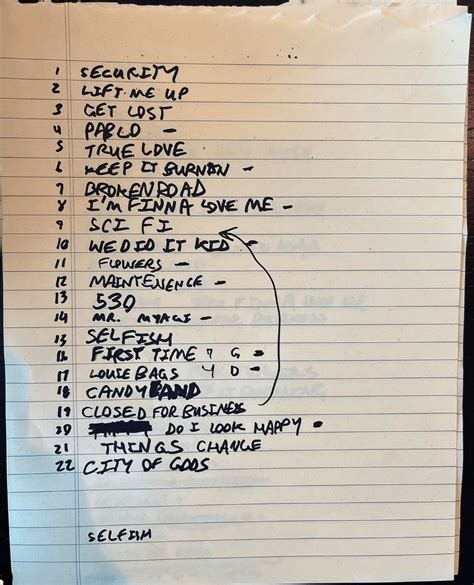 1 SECURITY
2 LIFT ME UP
3 GET LOST
4 PABLO -
5 TRUE LOVE
6 KEEP IT BURNIN -
7 BROKEN ROAD
8 I'M FINNA LOVE ME -
9 SCI FI
10 WE DID IT KID -
11 FLOWERS -
12 MAINTENENCE -
13 530
14 MR. MYAGI -
15 SELFISH
16 FIRST TIME 4 G -
17 LOUIE BAGS 4 D -
18 CANDY
19 CLOSED FOR BUSINESS
20 DO I LOOK HAPPY -
21 THINGS CHANGE
22 CITY OF GODS
SELFISH